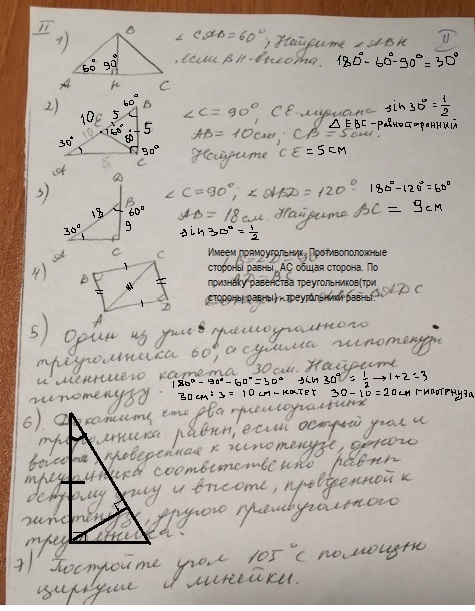 II
II
1)
∠CAB=60°; Найдите ∠ABH
, если BH-высота. 180°-60-90°=30°
B
60° 90°
A H C
2)
∠C = 90°, CE-медиана sin30°=1/2
△EBC-равносторонний
AB = 10см; CB = 5см.
Найдите CE =5см
10 E 5 60° B
10 60° 60 5
30°
A 5 C 90°
3)
∠C=90°; ∠ABD=120° 180°-120°=60°
AB = 18см. Найдите BC = 9см
sin30°=1/2
D
18 B 60°
30° 9
A C
4)
Имеем прямоугольник. Противоположные
стороны равны. AC общая сторона. По
признаку равенства треугольников(три
стороны равны)- треугольники равны.
∠B=∠D=90°
AB=DC
ADC
B C
A D
5) Один из углов прямоугольного
треугольника 60°, а сумма гипотенузы
и меньшего катета 30см. Найдите
гипотенузу 180°-90°-60°=30° sin30°=1/2→1+2=3
30см:3=10см-катет 30-10=20см гипотенуза
6) Докажите, что два прямоугольных
треугольника равны, если острый угол и
высота, проведённая к гипотенузе, одного
треугольника соответственно равны
острому углу и высоте, проведённой к
гипотенузе, другого прямоугольного
треугольника.
7) Постройте угол 105° с помощью
циркуля и линейки.